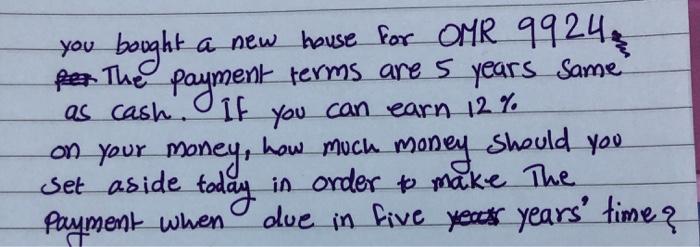 you bought a new house for OMR 9924
The payment terms are 5 years Same
as cash. If you can earn 12 %
on your money, how much money should you
set aside today in order to make The
Payment when due in five years' time?